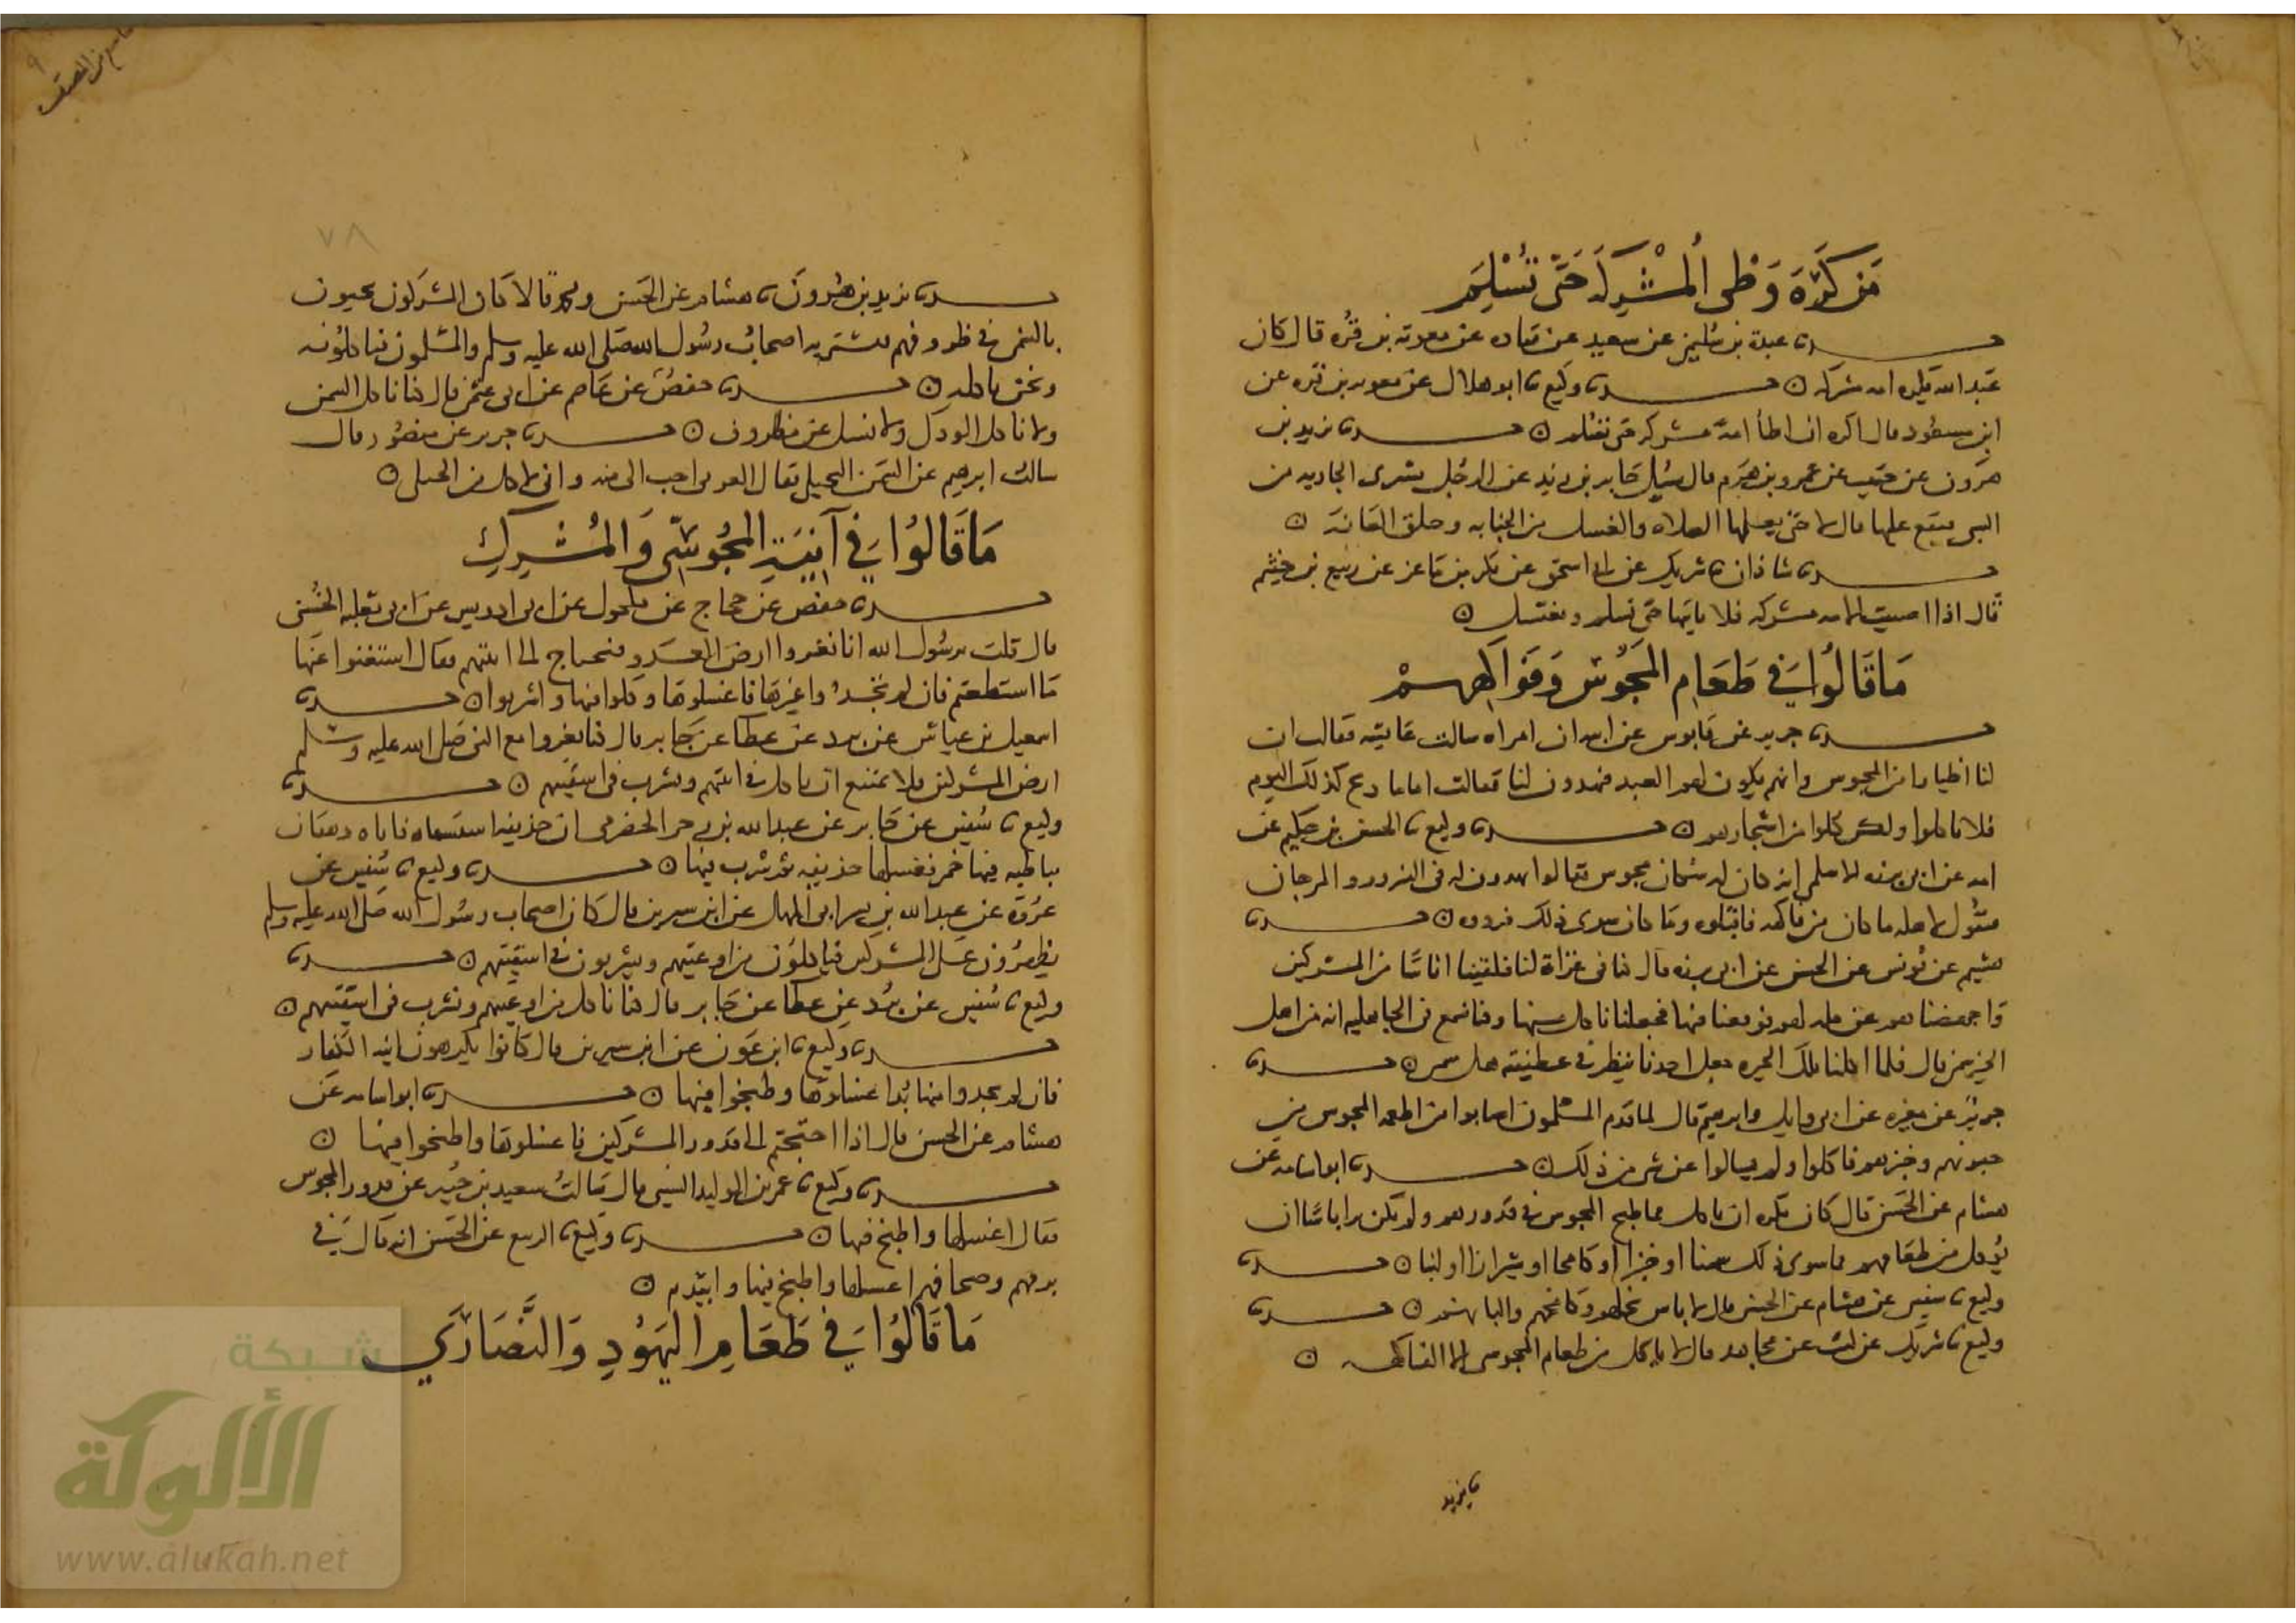 من كره وطى المشركة حتى تسلم
حدثنا عبدة بن سليمن عن سعيد عن قتاده عن معوية بن قره قال كان
عبد الله يكره امه مشركه حدثنا وكيع نا ابو هلال عن معويه بن قره عن
ابن مسعود قال اكره ان اطأ امة مشركه حتى تسلم حدثنا يزيد بن
هرون عن حبيب عن عمرو بن هرم قال سئل جابر بن زيد عن الرجل يشترى الجاريه من
السبى فيقع عليها قال لا حتى يعلمها الصلاه والغسل من الجنابه وحلق العانة
حدثنا شاذان نا شريك عن ابى اسحق عن بكر بن ماعز عن ربيع بن خثيم
قال اذا اصبت الامه مشركه فلا ياتها حتى تسلم وتغتسل
ما قالوا في طعام المجوس وفواكههم
حدثنا جرير عن قابوس عن ابيه ان امراه سالت عايشه فقالت ان
لنا اظيارا من المجوس وانهم يكون لهم العيد فيهدون لنا فقالت اما ما ذبح لذلك اليوم
فلا تاكلوا ولكن كلوا من اشجارهم حدثنا وكيع نا الحسن بن حكيم عن
امه عن ابى برزه الاسلمى انه كان له سكان مجوس فكانوا يهدون له فى النيروز والمهرجان
فيقول لاهله ما كان من فاكهه فاقبلوه وما كان سوى ذلك فردوه حدثنا
هشيم عن يونس عن الحسن عن ابى برزه قال كنا فى غزاة لنا فلقينا اناسا من المشركين
فاجهضناهم عن مله لهم فوقعنا فيها فجعلنا ناكل منها وكنا نسمع فى الجاهليه انه من اكل
الخبز سمن قال فلما اكلنا تلك الخبزه جعل احدنا ينظر فى عطفيه هل سمن حدثنا
جرير عن مغيره عن ابى وايل وابرهيم قال لما قدم المسلمون اصابوا من اطعمه المجوس من
جبنهم وخبزهم فاكلوا ولم يسالوا عن شى من ذلك حدثنا ابو اسامه عن
هشام عن الحسن قال كان يكره ان ياكل مما طبخ المجوس فى قدورهم ولم يكن يرا باسا ان
يؤكل من طعامهم مما سوى ذلك سمنا او خبزا او كامخا او شيرازا او لبنا حدثنا
وكيع نا سفين عن هشام عن الحسن قال لا باس بخلهم وكامخهم والبانهم حدثنا
وكيع نا شريك عن ليث عن مجاهد قال لا ياكل من طعام المجوس الا الفاكهه
نا يزيد
٧٨
حدثنا يزيد بن هرون نا هشام عن الحسن ومحمد قالا كان المشركون يجيون
بالسمن فى ظروفهم فيشتريه اصحاب رسول الله صلى الله عليه وسلم والمسلمون فياكلونه
ونحن ناكله حدثنا حفص عن عاصم عن ابى عثمن قال كنا ناكل السمن
ولا ناكل الودك ولا نسل عن الظروف حدثنا جرير عن منصور قال
سالت ابرهيم عن السمن الجبلى فقال العربى احب الى منه وانى لاكل من الجبلى
ما قالوا في آنية المجوسي والمشرك
حدثنا حفص عن حجاج عن مكحول عن ابى ادريس عن ابى ثعلبه الخشنى
قال قلت يرسول الله انا نغزوا ارض العدو فنحتاج الى انيتهم فقال استغنوا عنها
ما استطعتم فان لم تجدوا غيرها فاغسلوها وكلوا فيها واشربوا حدثنا
اسمعيل بن عياش عن برد عن عطا عن جابر قال كنا نغزوا مع النبى صلى الله عليه وسلم
ارض المشركين فلا نمتنع ان ناكل فى انيتهم ونشرب فى اسقيتهم حدثنا
وكيع نا سفين عن جابر عن عبد الله بن نجى الحضرمى ان حذيفه استسقاه فاتاه دهقان
بباطيه فيها خمر فغسلها حذيفه ثم شرب فيها حدثنا وكيع نا سفين عن
عروة عن عبد الله بن ابى المهل عن ابن سيرين قال كان اصحاب رسول الله صلى الله عليه وسلم
يظهرون على المشركين فياكلون من اوعيتهم ويشربون فى اسقيتهم حدثنا
وكيع نا سفين عن برد عن عطا عن جابر قال كنا ناكل من اوعيتهم ونشرب فى اسقيتهم
حدثنا وكيع نا ابن عون عن ابن سيرين قال كانوا يكرهون انيه الكفار
فان لم يجدوا منها بدا غسلوها وطبخوا فيها حدثنا ابو اسامه عن
هشام عن الحسن قال اذا احتجتم الى قدور المشركين فاغسلوها واطبخوا فيها
حدثنا وكيع نا عمر بن الوليد الشنى قال سالت سعيد بن جبير عن قدور المجوس
فقال اغسلها واطبخ فيها حدثنا وكيع نا الربيع عن الحسن انه قال فى
برمهم وصحافهم اغسلها واطبخ فيها وايتدم
ما قالوا في طعام اليهود والنصارى
شبكة
الألوكة
www.alukah.net